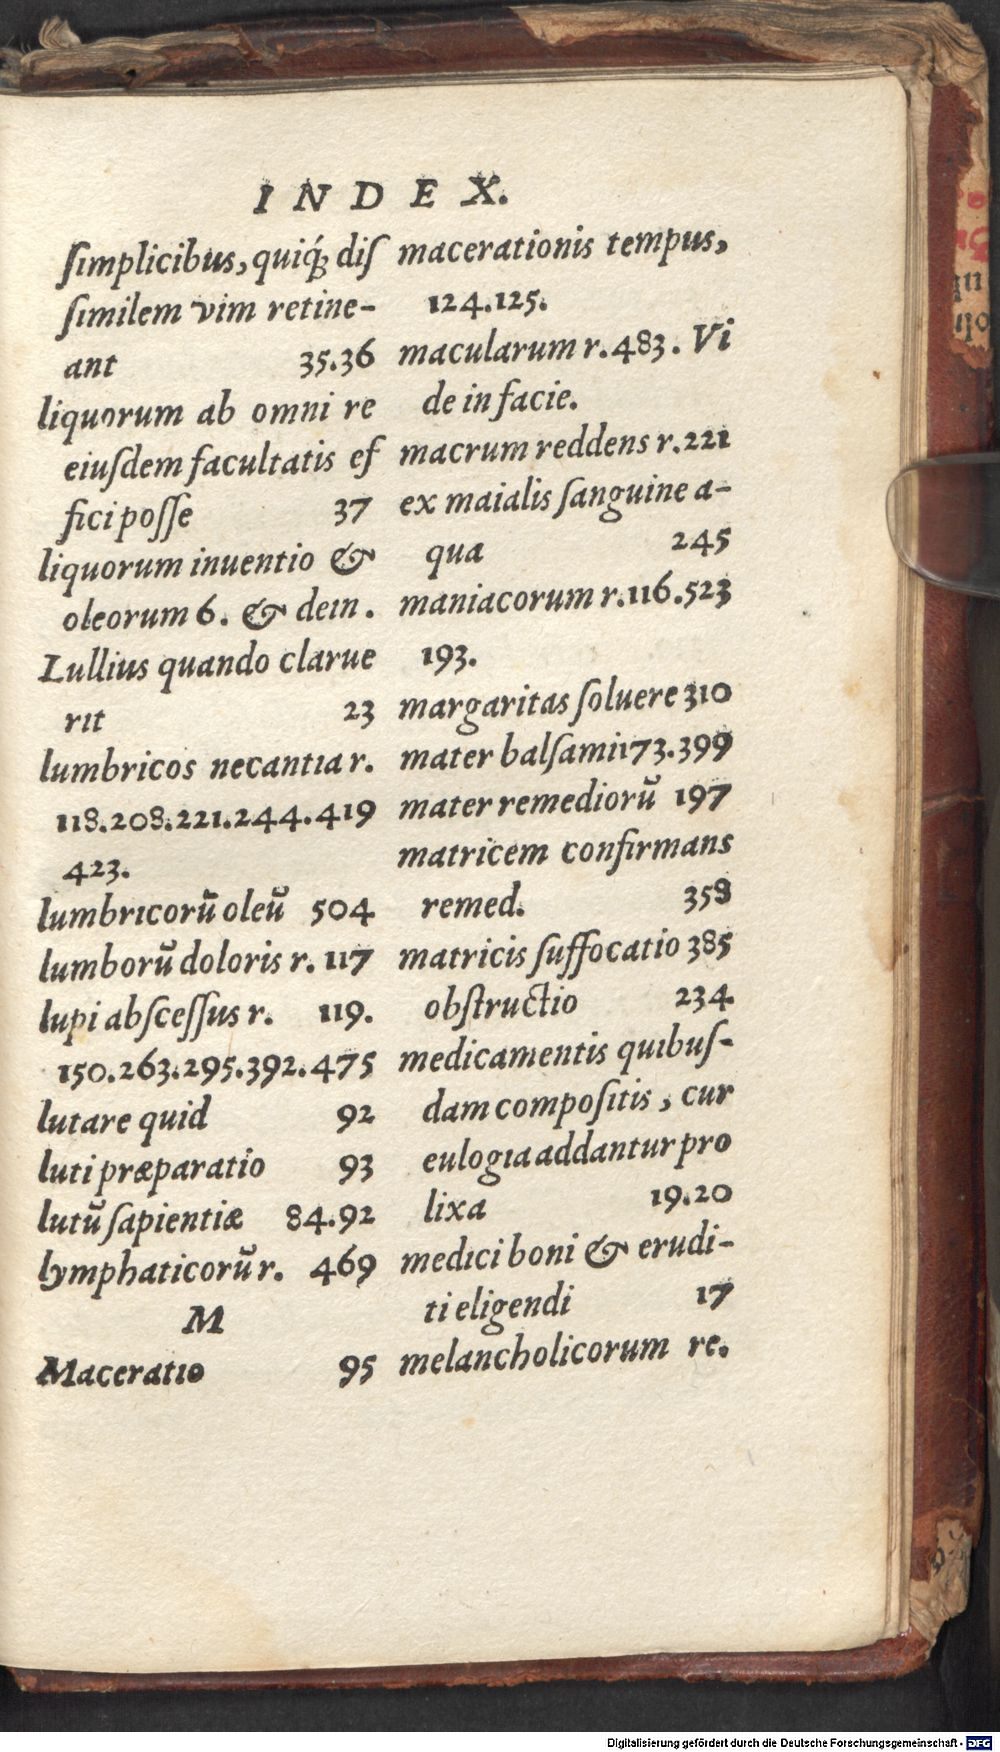 INDEX.
ſimplicibus, quiq́; diſ
ſimilem vim retine-
ant 35.36
liquorum ab omni re
eiuſdem facultatis ef
fici poſſe 37
liquorum inuentio &
oleorum 6. & dein.
Lullius quando clarue
rit 23
lumbricos necantia r.
118.208.221.244.419
423.
lumbricorũ oleũ 504
lumborũ doloris r. 117
lupi abſceſſus r. 119.
150.263.295.392.475
lutare quid 92
luti præparatio 93
lutũ ſapientiæ 84.92
lymphaticorũ r. 469
M
Maceratio 95
macerationis tempus,
124.125.
macularum r. 483. Vi
de in facie.
macrum reddens r. 221
ex maialis ſanguine a-
qua 245
maniacorum r. 116.523
193.
margaritas ſoluere 310
mater balſami 173.399
mater remediorũ 197
matricem confirmans
remed. 358
matricis ſuffocatio 385
obſtructio 234
medicamentis quibuſ-
dam compoſitis, cur
eulogia addantur pro
lixa 19.20
medici boni & erudi-
ti eligendi 17
melancholicorum re.
Digitalisierung gefördert durch die Deutsche Forschungsgemeinschaft - DFG